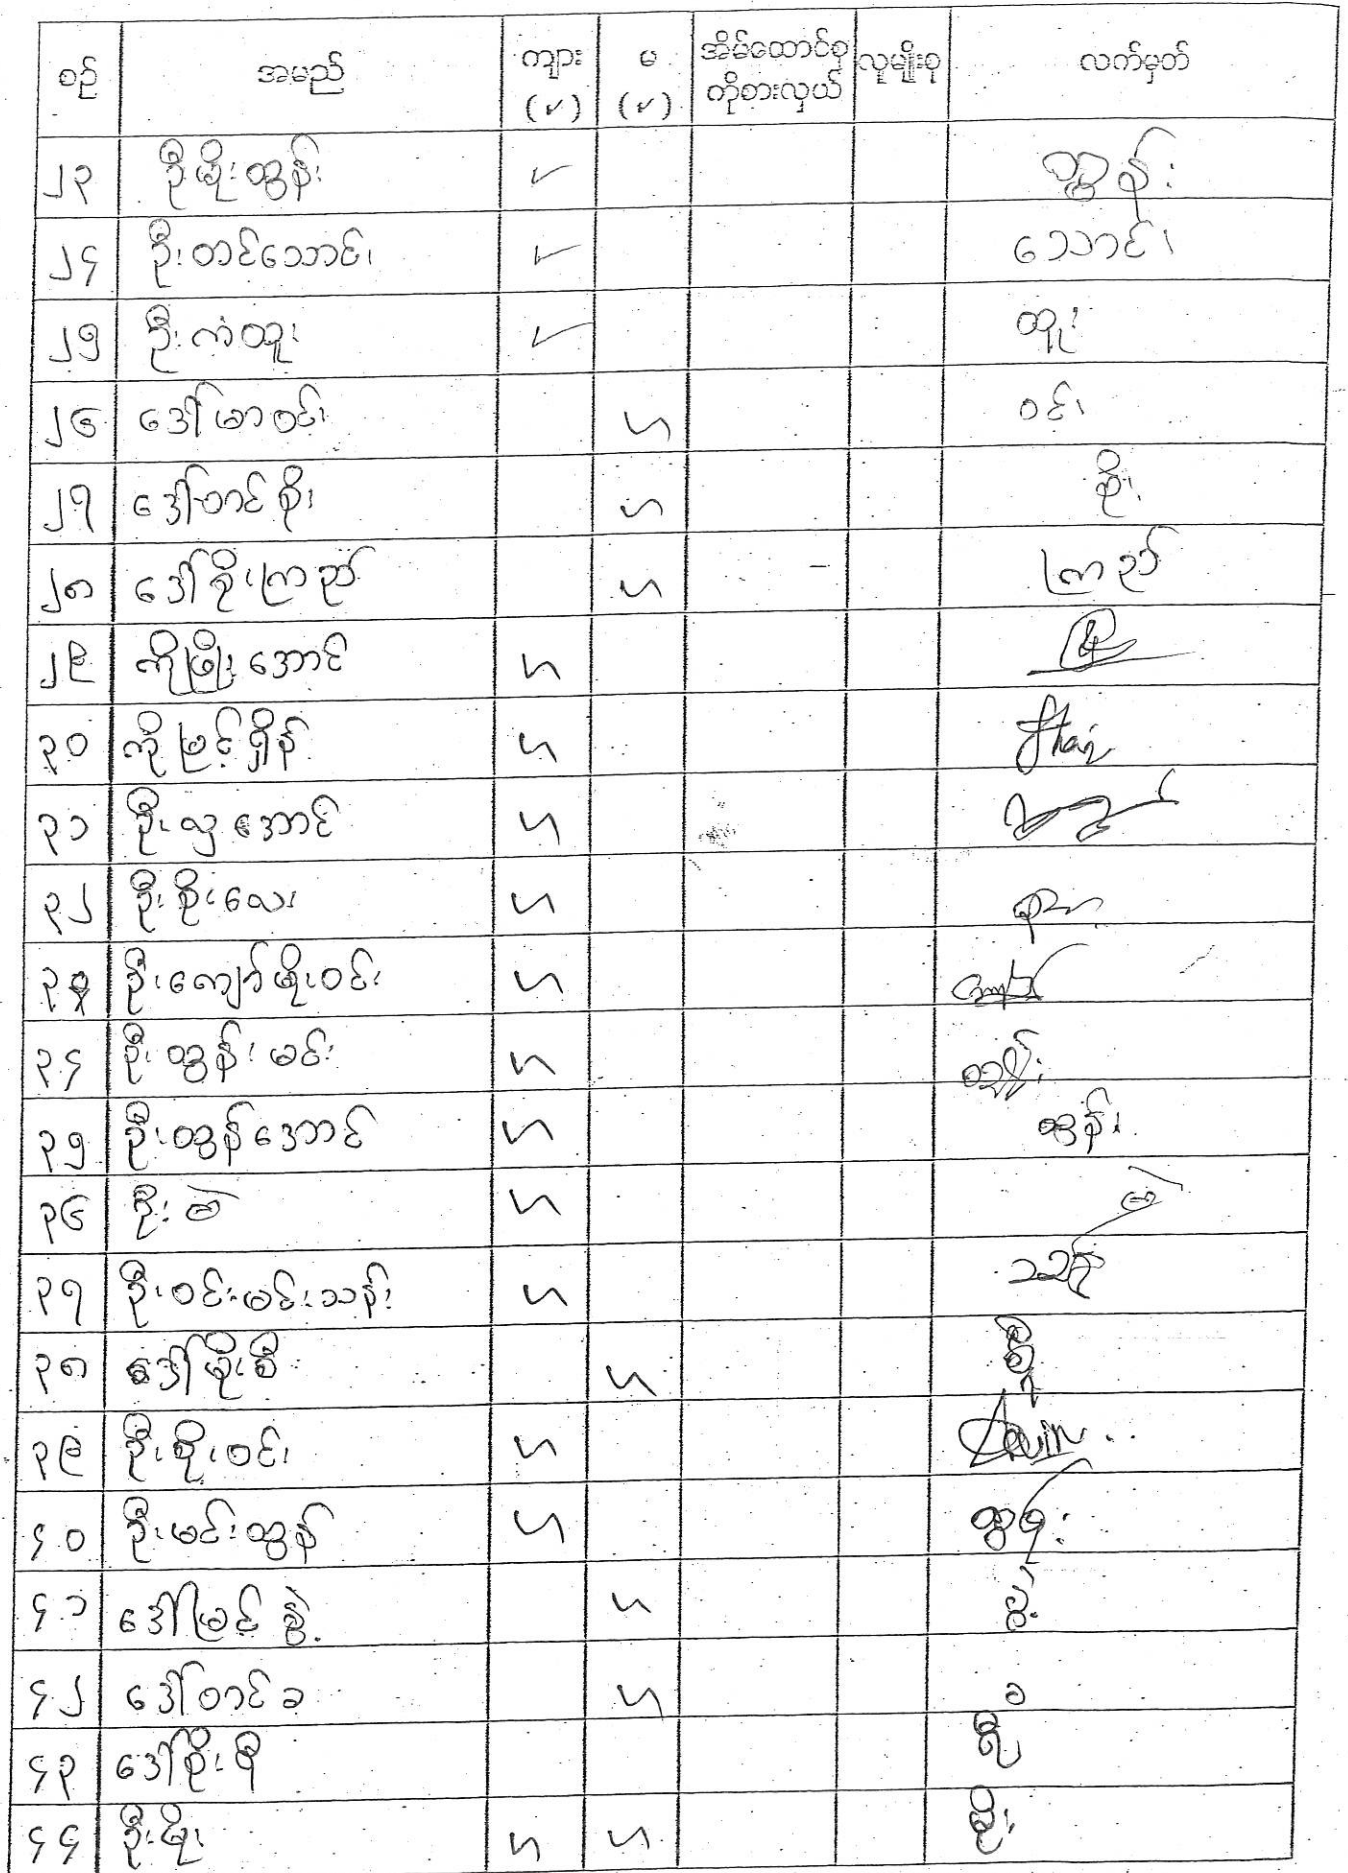 စဉ် အမည် ကျား (✓) မ (✓) အိမ်ထောင်စု ကိုစားလှယ် လူမျိုးစု လက်မှတ်
၂၃ ဦးမိုးထွန်း ✓ ထွန်း
၂၄ ဦးတင်သောင်း ✓ သောင်း
၂၅ ဦးကံထူး ✓ ထူး
၂၆ ဒေါ်မာဝင်း ✓ ဝင်း
၂၇ ဒေါ်တင်စိုး ✓ စိုး
၂၈ ဒေါ်စိုးကြည် ✓ ကြည်
၂၉ ကိုဖြိုးအောင် ✓
၃၀ ကိုမြင့်ရှိန် ✓
၃၁ ဦးလှအောင် ✓
၃၂ ဦးစိုးလေး ✓
၃၃ ဦးကျော်မိုးဝင်း ✓
၃၄ ဦးထွန်းမင်း ✓
၃၅ ဦးထွန်အောင် ✓ ထွန်း
၃၆ ဦးဗဲ ✓ ဗဲ
၃၇ ဦးဝင်းမင်းသန်း ✓
၃၈ ဒေါ်မိုးစီ ✓
၃၉ ဦးစိုးဝင်း ✓
၄၀ ဦးမင်းထွန် ✓
၄၁ ဒေါ်မြင့် ✓
၄၂ ဒေါ်တင်ခ ✓ ခ
၄၃ ဒေါ်စိုး
၄၄ ဦးမိုး ✓ ✓ မိုး